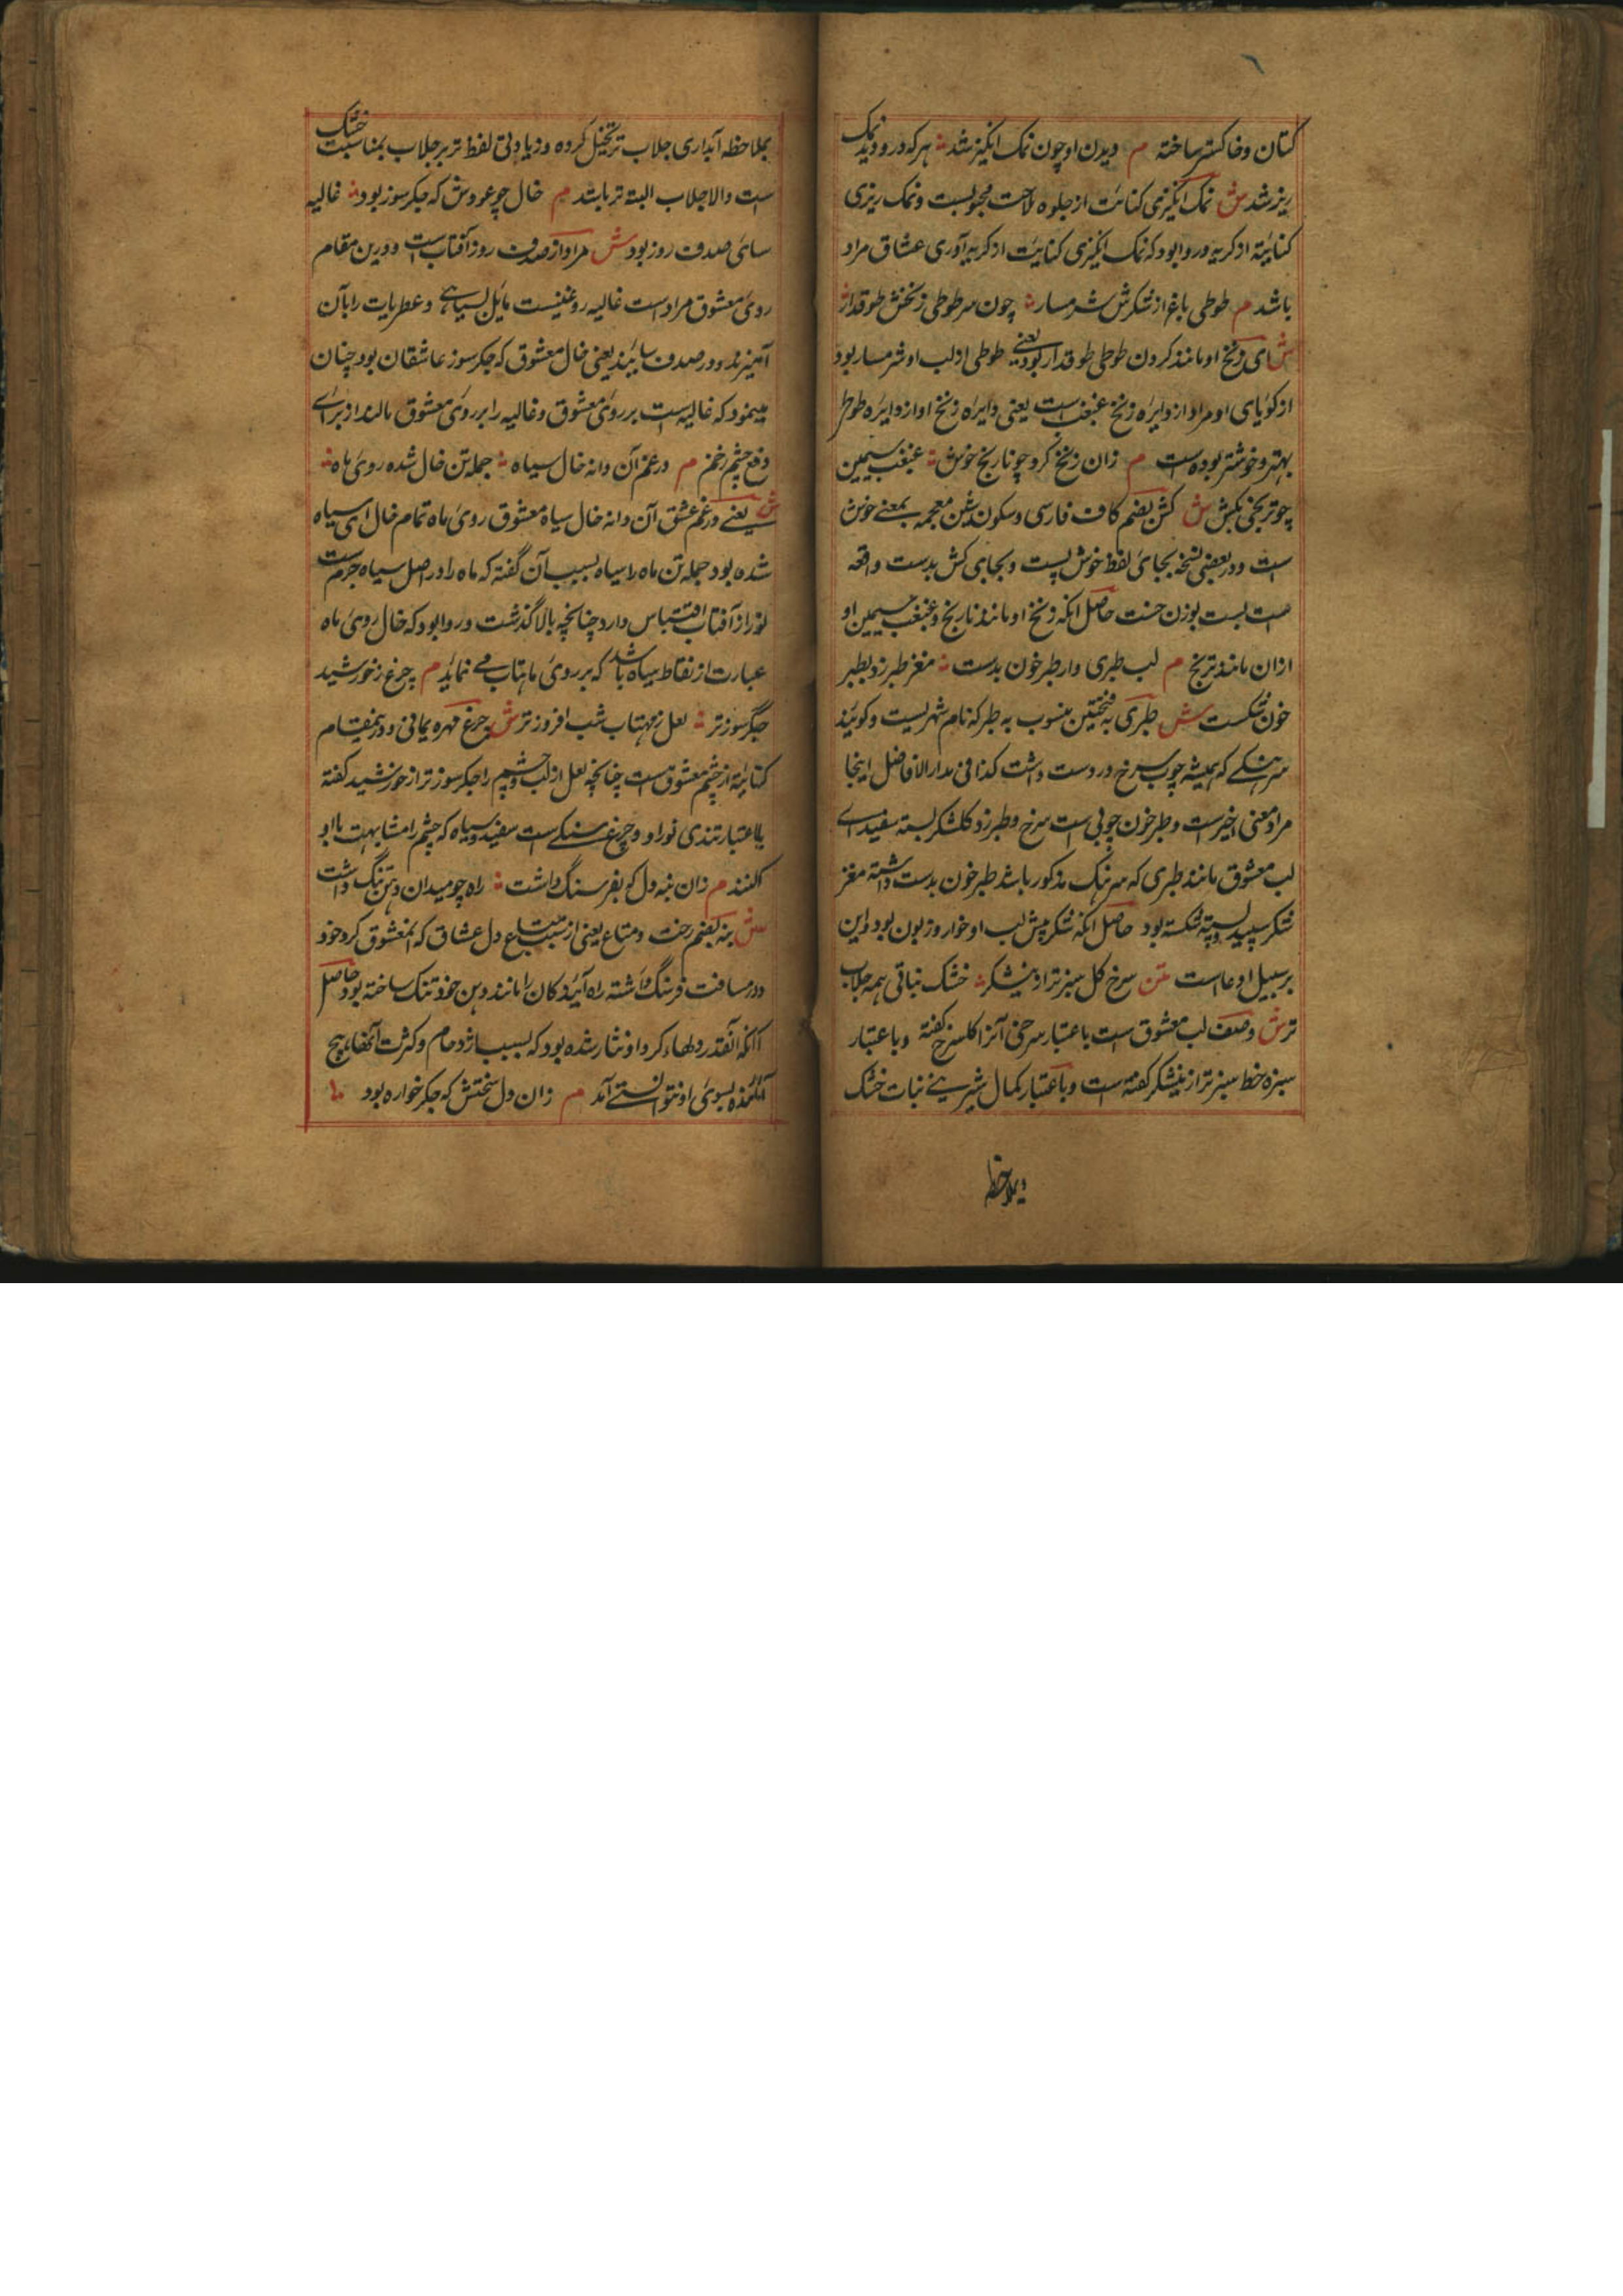 کتان و خاکستر ساخته م دیدن او چون نمک انگیز شد هر که درو دید نمک
ریز شد ش نمک انگیزی کنایت از جلوه ملاحت محبوبست و نمک ریزی
کنایة از کریه و روا بود که نمک انگیزی کنایت از کریه آوری عشاق مراد
باشد م طوطی باغ از شکرش شرمسار چون سر طوطی زنخش طوقدار
ش ای زنخ او مانند کردن طوطی طوقدار بود یعنی طوطی از لب او شرمسار بود
از کویای او مراد از دایره زنخ غبغب است یعنی دایره زنخ او از دایره طوطی
بهتر و خوشتر بوده است م زان زنخ کرد چو نارنج خوش غبغب سیمین
چو ترنجی بکش ش کش بضم کاف فارسی و سکون شین معجمه بمعنی خوش
است و در بعضی نسخه بجای لفظ خوش بست و بجای کش بدست واقعه
است بست بوزن حاصل انکه زنخ او مانند نارنج و غبغب سیمین او
ازان مانند ترنج م لب طبری وار طبر خون بدست مغز طبرزد بطبر
خون شکست ش طبری به فتحتین منسوب به طبر که نام شهریست و کویند
سرهنکی که همیشه چوب سرخ در دست داشت کذا فی مدار الافاضل اینجا
مراد معنی اخیر است و طبر خون چوبی است سرخ و طبرزد شکر بسته سفید ای
لب معشوق مانند طبری که سرهنک مذکور باشد طبر خون بدست داشته مغز
شکر سپید بسته شکسته بود حاصل انکه شکر پیش لب او خوار و زبون بود و این
بر سبیل ادعا است متن سرخ کل سبز تر از نیشکر خشک نباتی همه جلاب
تر ش وصف لب معشوق است باعتبار سرخی آنرا کل سرخ کفته و باعتبار
سبزه خط سبز تر از نیشکر کفته است و باعتبار کمال شیرینی نبات خشک
بملاحظه
بملاحظه آبداری جلاب تر تخیل کرده و زیادتی لفظ تر بر جلاب بمناسبت خشک
است والا جلاب البته تر باشد م خال چو عودش که جکر سوز بود غالیه
سای صدف روز بود ش مراد از صدف روز آفتاب است و درین مقام
روی معشوق مراد است غالیه روغنیست مایل بسیاهی و عطریات را بآن
آمیزند و در صدف سایند یعنی خال معشوق که جکر سوز عاشقان بود چنان
مینمود که غالیه است بر روی معشوق و غالیه را بر روی معشوق مالند از برای
دفع چشم زخم م در غم آن دانه خال سیاه جمله تن خال شده روی ماه
ش یعنی در غم عشق آن دانه خال سیاه معشوق روی ماه تمام خال ای سیاه
شده بود جمله تن ماه را سیاه بسبب آن گفته که ماه را در اصل سیاه جرم است
نور از آفتاب اقتباس دارد چنانچه بالا گذشت و روا بود که خال روی ماه
عبارت از نقاط سیاه باشد که بر روی ماهتاب می نماید م جزع ز خورشید
جگر سوز تر لعل ز مهتاب شب افروز تر ش جزع مهره یمانی و درینمقام
کنایة از چشم معشوق است چنانچه لعل از لب و چشم را جکر سوز تر از خورشید کفته
باعتبار تندی نور او و جزع سنکی است سفید و سیاه که چشم را مشابهت باو
کنند م زان بنه دل که بفرسنگ داشت راه چو میدان دهن تنگ داشت
ش بنه بضم رخت و متاع یعنی از بسیاری متاع دل عشاق که معشوق کرد خود
در مسافت فرسنگ داشته راه آیندکان را مانند دهن خود تنک ساخته بود حاصل
انکه آنقدر دلهاء کرد او نثار شده بود که بسبب ازدحام و کثرت آنها هیچ
آینده بسوی او نتوانستی آمد م زان دل سختش که جکر خواره بود